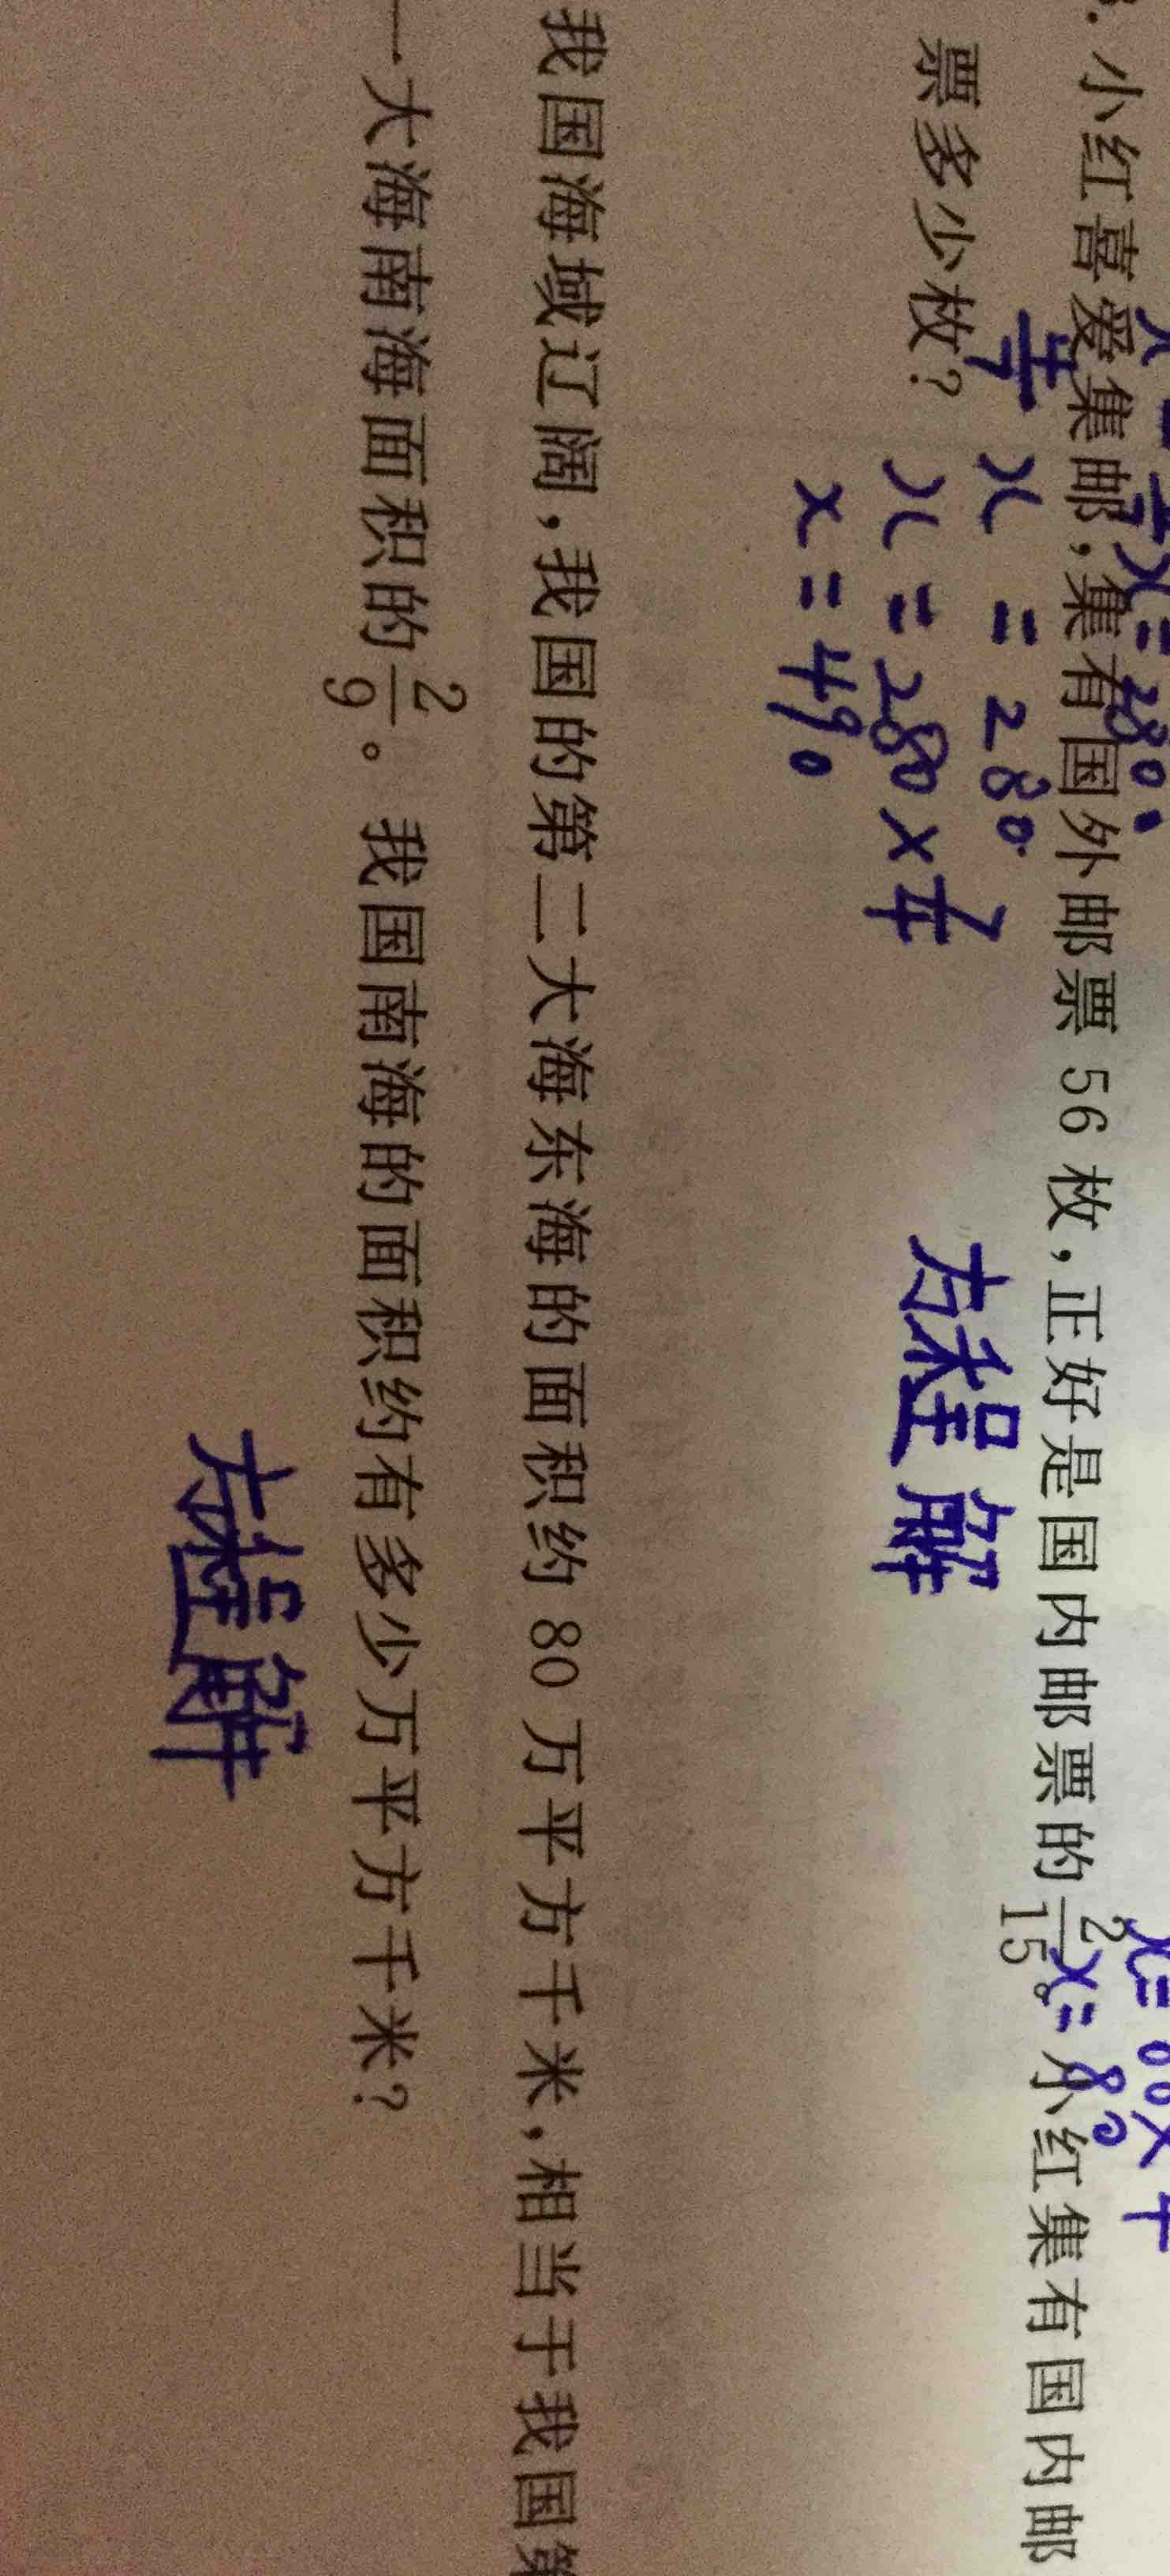 小红喜爱集邮,集有国外邮票 56 枚,正好是国内邮票的2/15。小红集有国内邮
票多少枚?
x = 280
x = 280 ×
x = 490
x = 80
方程解
我国海域辽阔,我国的第二大海东海的面积约 80 万平方千米,相当于我国第
一大海南海面积的2/9。我国南海的面积约有多少万平方千米?
方程解